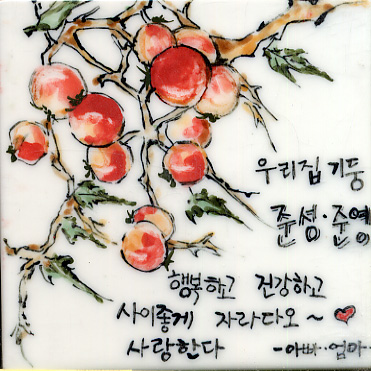 우리집 기둥
준성·준영
행복하고 건강하고
사이좋게 자라다오~
사랑한다 -아빠··엄마-